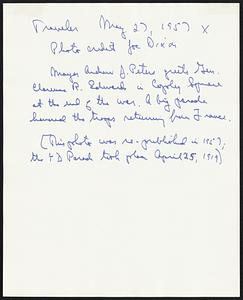 Traveler May 27, 1957 x
Photo credit Joe Dixon
Mayor Andrew J. Peters greets Gen.
Clarence R. Edwards in Copley Square
at the end of the war. A big parade
honored the troops returning from France.
(This photo was re-published in 1957;
the YD Parade took place April 25, 1919)